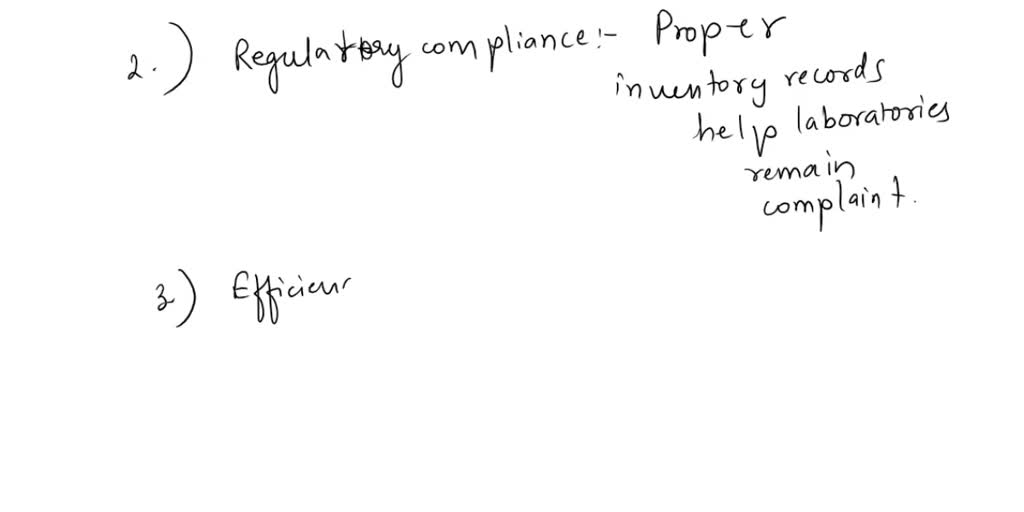 2.) Regulatory compliance:- Proper
inventory records
help laboratories
remain
complaint.
3) Efficienc